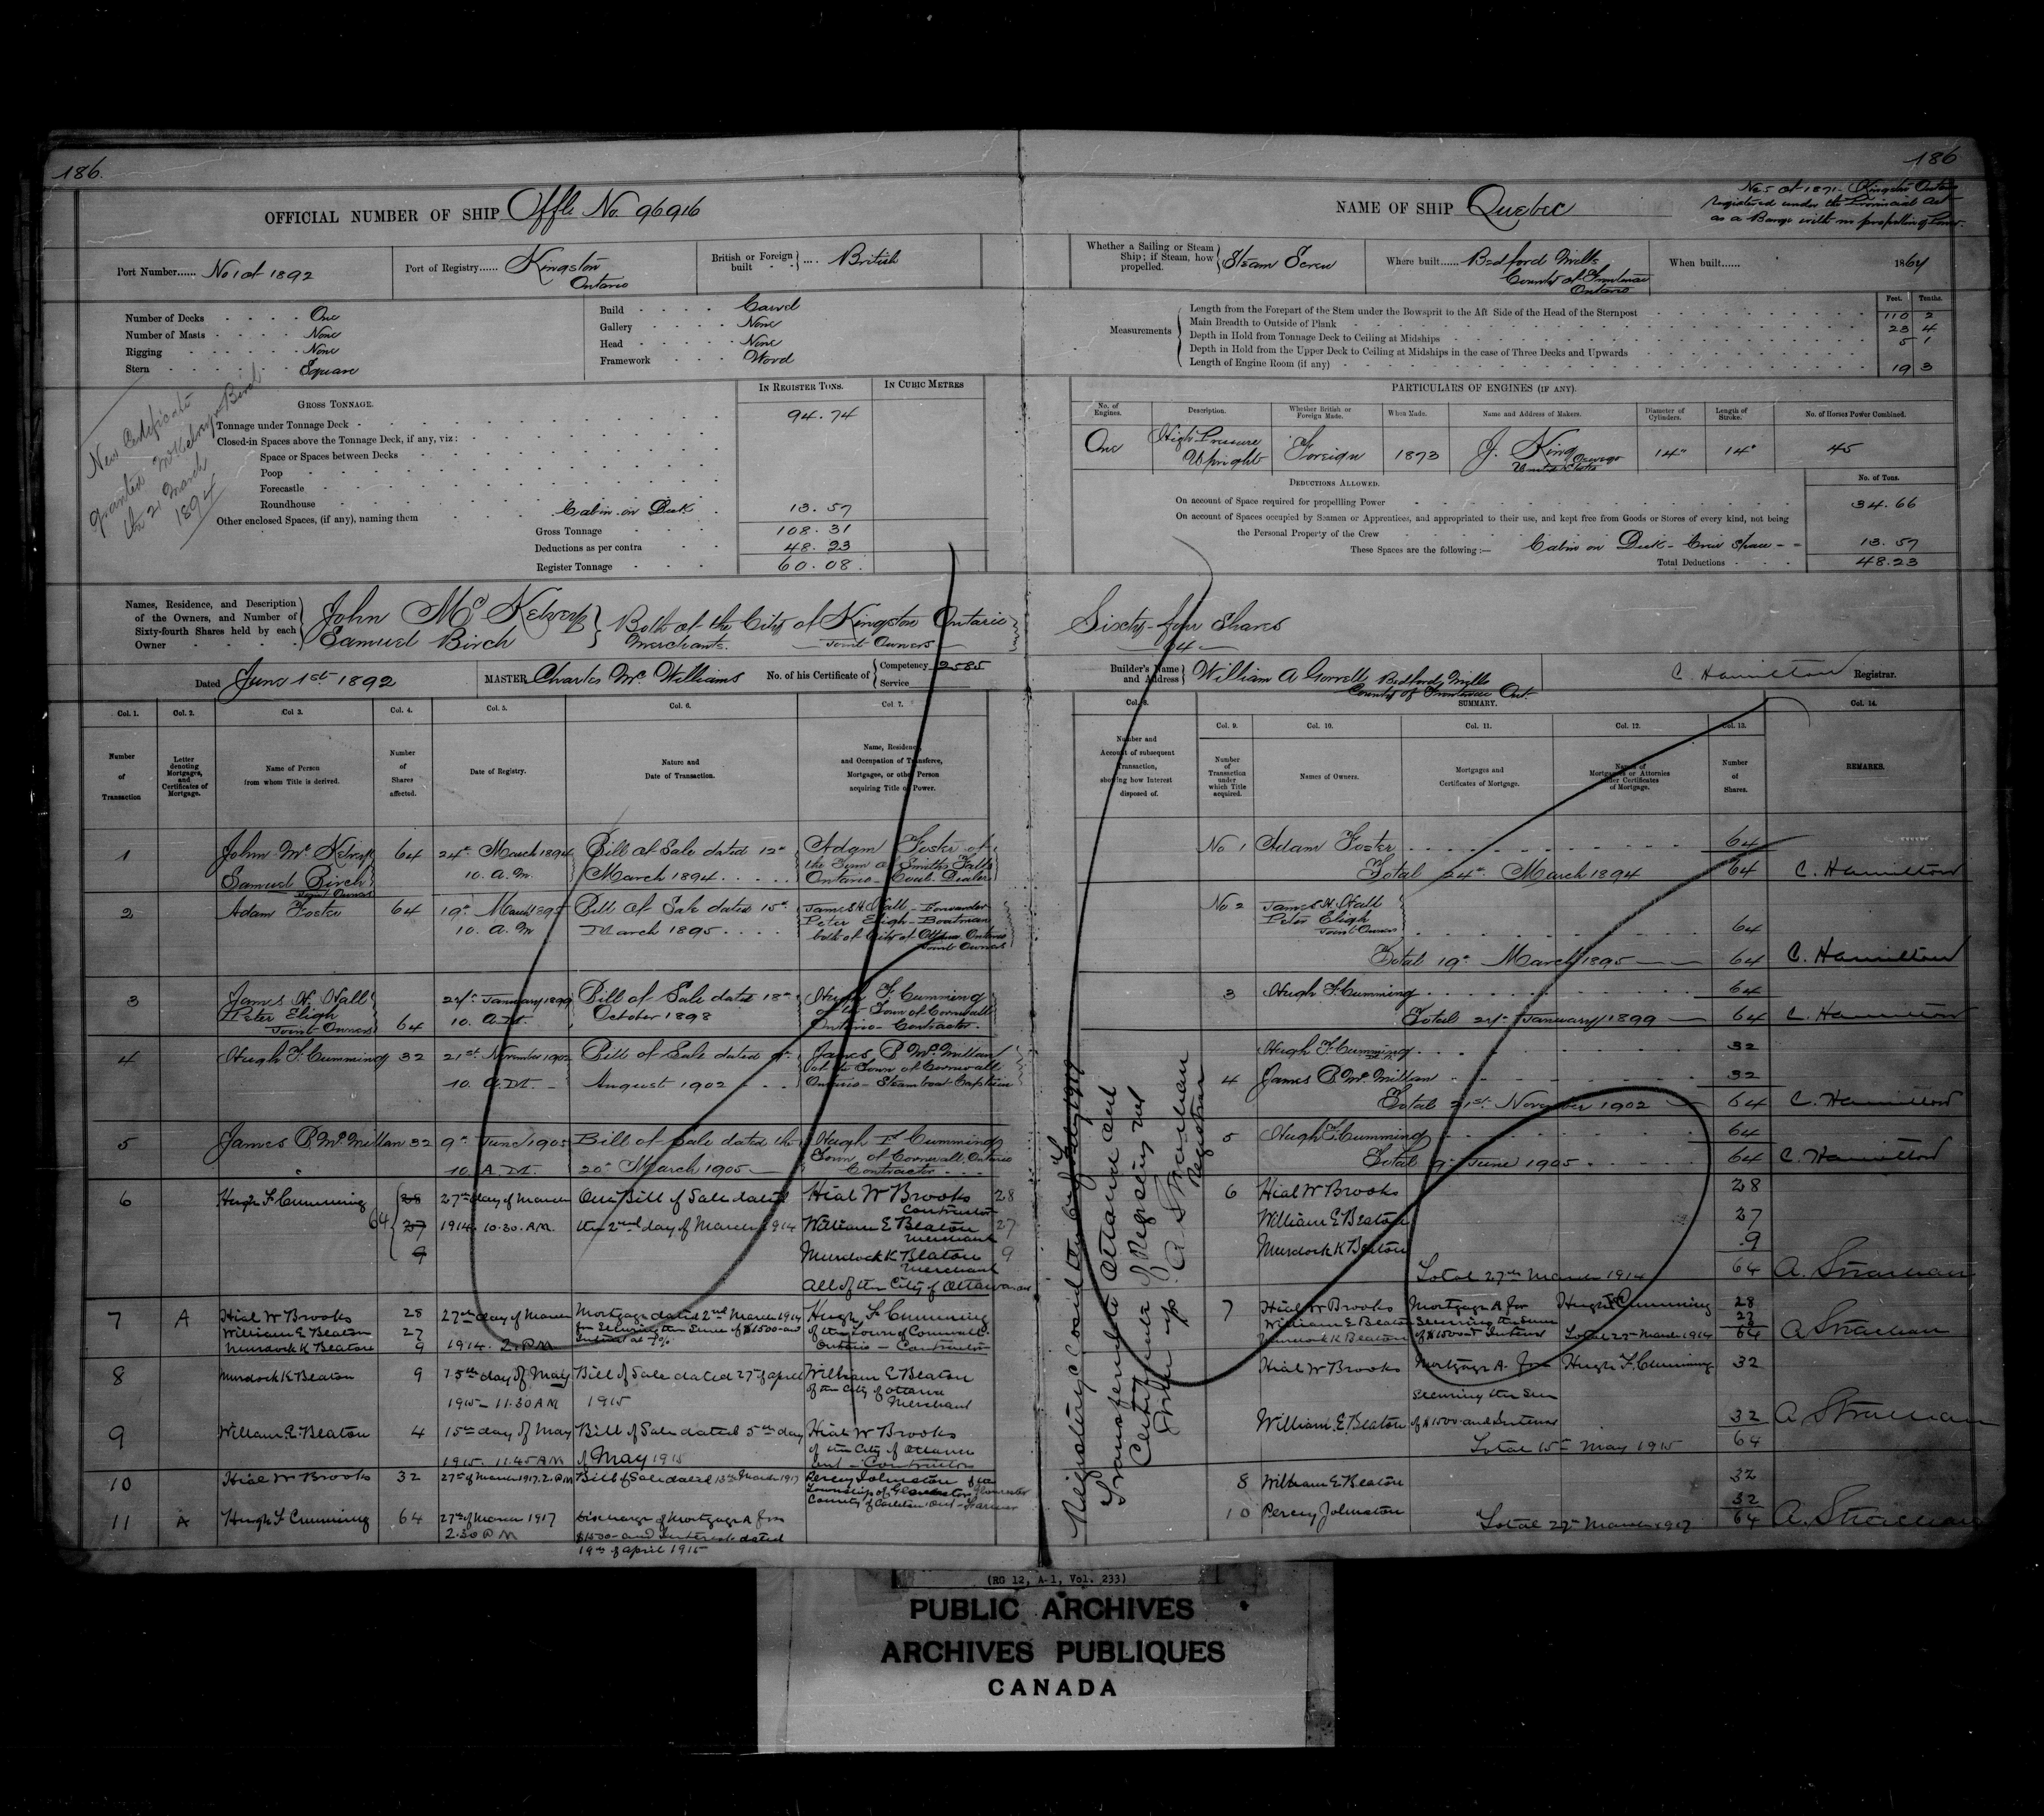 186.
186
OFFICIAL NUMBER OF SHIP Offl. No. 96916
NAME OF SHIP Quebec
No 5 of 1871 - Kingston Ontario
registered under the Provincial Act
as a Barge with no propelling Power.
Port Number...... No 1 of 1892
Port of Registry...... Kingston
Ontario
British or Foreign built .... British
Whether a Sailing or Steam Ship; if Steam, how propelled. Steam Screw
Where built...... Bedford Mills
County of Frontenac
Ontario
When built...... 1864
Number of Decks One
Number of Masts None
Rigging None
Stern Square
Build Carvel
Gallery None
Head None
Framework Wood
Measurements
Feet. Tenths.
Length from the Forepart of the Stem under the Bowsprit to the Aft Side of the Head of the Sternpost 110 2
Main Breadth to Outside of Plank 23 4
Depth in Hold from Tonnage Deck to Ceiling at Midships 5 1
Depth in Hold from the Upper Deck to Ceiling at Midships in the case of Three Decks and Upwards
Length of Engine Room (if any) 19 3
New Certificate
granted McKelvey & Birch
the 21 March
1894
GROSS TONNAGE.
IN REGISTER TONS.
IN CUBIC METRES
Tonnage under Tonnage Deck 94.74
Closed-in Spaces above the Tonnage Deck, if any, viz:
Space or Spaces between Decks
Poop
Forecastle
Roundhouse
Other enclosed Spaces, (if any), naming them Cabin on Deck 13.57
Gross Tonnage 108.31
Deductions as per contra 48.23
Register Tonnage 60.08
PARTICULARS OF ENGINES (IF ANY).
No. of Engines.
Description.
Whether British or Foreign Made.
When Made.
Name and Address of Makers.
Diameter of Cylinders.
Length of Stroke.
No. of Horses Power Combined.
One
High Pressure
Upright
Foreign
1873
J. King Oswego
United States
14"
14"
45
DEDUCTIONS ALLOWED.
No. of Tons.
On account of Space required for propelling Power 34.66
On account of Spaces occupied by Seamen or Apprentices, and appropriated to their use, and kept free from Goods or Stores of every kind, not being
the Personal Property of the Crew
These Spaces are the following:— Cabin on Deck - Crew Space - - 13.57
Total Deductions 48.23
Names, Residence, and Description of the Owners, and Number of Sixty-fourth Shares held by each Owner
John McKelvey
Samuel Birch
Both of the City of Kingston Ontario
Merchants. — Joint Owners —
Sixty-four Shares
— 64 —
Dated June 1st 1892
MASTER Charles McWilliams
No. of his Certificate of Competency 2585
Service
Builder's Name and Address William A Gorrell Bedford Mills
County of Frontenac Ont.
C. Hamilton Registrar.
SUMMARY.
Col. 1.
Col. 2.
Col 3.
Col. 4.
Col. 5.
Col. 6.
Col. 7.
Col. 8.
Col. 9.
Col. 10.
Col. 11.
Col. 12.
Col. 13.
Col. 14.
Number of Transaction
Letter denoting Mortgages, and Certificates of Mortgage.
Name of Person from whom Title is derived.
Number of Shares affected.
Date of Registry.
Nature and Date of Transaction.
Name, Residence, and Occupation of Transferee, Mortgagee, or other Person acquiring Title or Power.
Number and Account of subsequent Transaction, showing how Interest disposed of.
Number of Transaction under which Title acquired.
Names of Owners.
Mortgages and Certificates of Mortgage.
Names of Mortgagees or Attornies under Certificates of Mortgage.
Number of Shares.
REMARKS.
1
John McKelvey
Samuel Birch
Joint Owners
64
24th March 1894
10. A.M.
Bill of Sale dated 12th
March 1894
Adam Foster of
the Town of Smiths Falls
Ontario - Coal Dealer
2
Adam Foster
64
19th March 1895
10. A.M
Bill of Sale dated 15th
March 1895
James H. Hall - Forwarder
Peter Eligh - Boatman
both of City of Ottawa Ontario
Joint Owners
3
James H. Hall
Peter Eligh
Joint Owners
64
24th January 1899
10. A.M.
Bill of Sale dated 18th
October 1898
Hugh F. Cumming
of the Town of Cornwall
Ontario - Contractor.
4
Hugh F. Cumming
32
21st November 1902
10. A.M. -
Bill of Sale dated 9th
August 1902
James P. McMillan
of the Town of Cornwall
Ontario - Steamboat Captain
5
James P. McMillan
32
9th June 1905
10 A.M.
Bill of Sale dated the
20th March 1905
Hugh F. Cumming
Town of Cornwall, Ontario
Contractor
6
Hugh F Cumming
64
28
27
9
27th day of March
1914 10.30. A.M.
One Bill of Sale dated
the 2nd day of March 1914
Hial W Brooks 28
Contractor
William E Beaton 27
Merchant
Murdock K Beaton 9
Merchant
All of the City of Ottawa
7
A
Hial W Brooks 28
William E Beaton 27
Murdock K Beaton 9
27th day of March
1914 2. P.M
Mortgage dated 2nd March 1914
for Securing the Sum of $1500 and
Interest at 7%.
Hugh F Cumming
of the Town of Cornwall.
Ontario - Contractor
8
Murdock K Beaton
9
15th day of May
1915 - 11.30 A.M
Bill of Sale dated 27th of April
1915
William E Beaton
of the City of Ottawa
Merchant
9
William E. Beaton
4
15th day of May
1915. 11.45 A.M
Bill of Sale dated 5th day
of May 1915
Hial W Brooks
of the City of Ottawa
Ont - Contractor
10
Hial W Brooks
32
27th of March 1917. 2. P.M
Bill of Sale dated 13th March 1917
Percy Johnston of the
Township of Gloucester
County of Carleton Ont - Farmer
11
A
Hugh F Cumming
64
27th of March 1917
2.30 P.M
Discharge of Mortgage A for
$1500 - and Interest dated
19th of April 1915
Registery closed
Transferred to Ottawa
Certificate of Registry not
given up.
A. Strachan
Registrar
No 1 Adam Foster 64
Total 24th March 1894 64 C. Hamilton
No 2 James H. Hall
Peter Eligh
Joint Owners 64
Total 19th March 1895 64 C. Hamilton
3 Hugh F. Cumming 64
Total 24th January 1899 64 C. Hamilton
Hugh F. Cumming 32
4 James P. McMillan 32
Total 21st November 1902 64 C. Hamilton
5 Hugh F. Cumming 64
Total 9th June 1905 64 C. Hamilton
6 Hial W Brooks 28
William E Beaton 27
Murdock K Beaton 9
Total 27th March 1914 64 A. Strachan
7 Hial W Brooks Mortgage A for Hugh F Cumming 28
William E Beaton Securing the Sum 27
Murdock K Beaton of $1500 and Interest Total 27th March 1914 64 A Strachan
Hial W Brooks Mortgage A. for Hugh F. Cumming 32
Securing the Sum
William E. Beaton of $1500 and Interest 32 A Strachan
Total 15th May 1915 64
8 William E Beaton 32
10 Percy Johnston 32
Total 27th March 1917 64 A. Strachan
(RG 12, A-1, Vol. 233)
PUBLIC ARCHIVES
ARCHIVES PUBLIQUES
CANADA